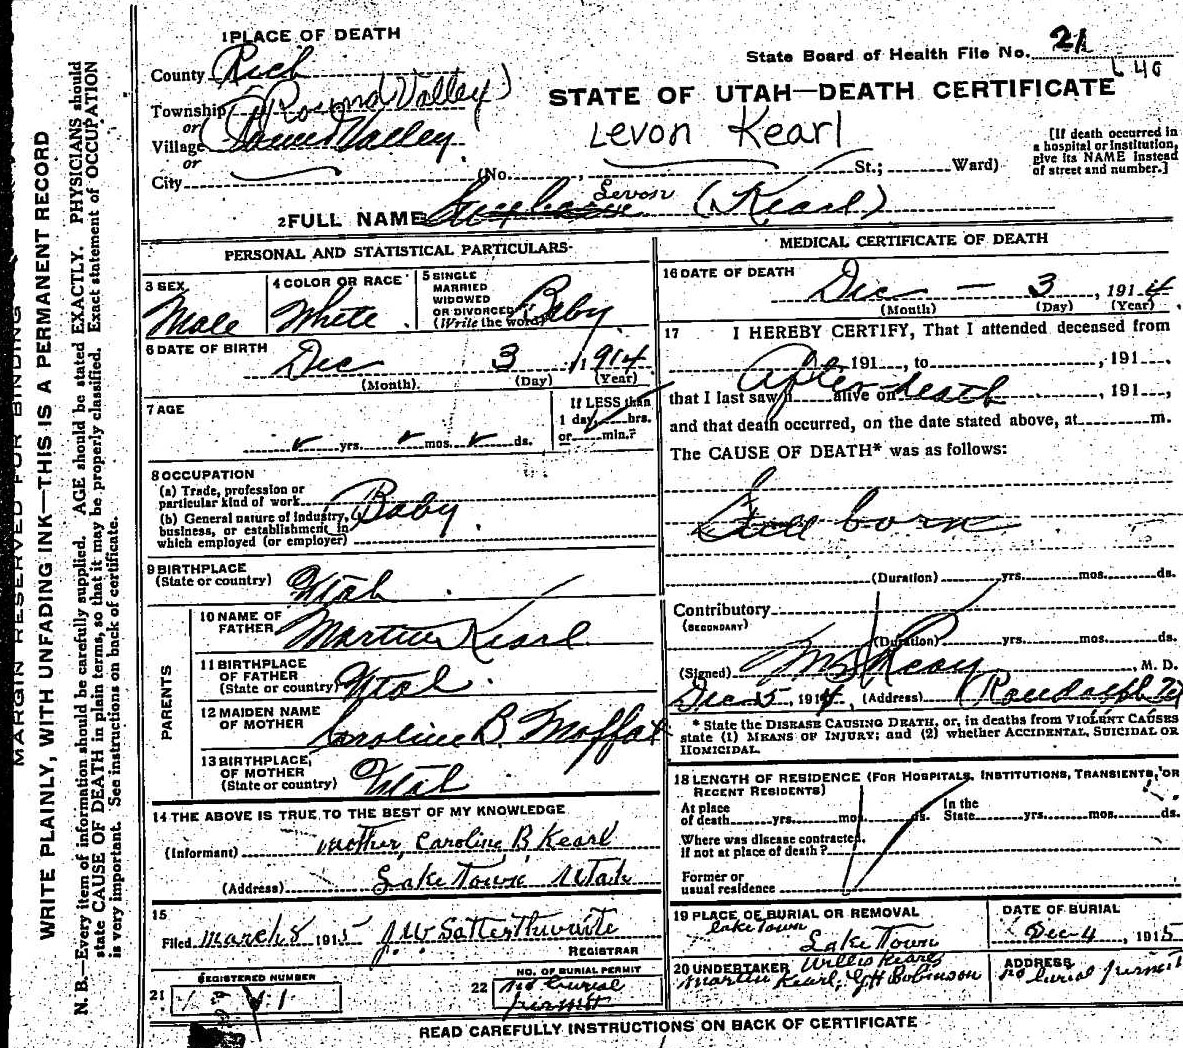 1 PLACE OF DEATH
County Rich
Township (Round Valley)
or
Village Round Valley
or
City (No. , St.; Ward)
State Board of Health File No. 21
STATE OF UTAH—DEATH CERTIFICATE
Levon Kearl
[If death occurred in
a hospital or institution,
give its NAME instead
of street and number.]
2 FULL NAME Levon (Kearl)
PERSONAL AND STATISTICAL PARTICULARS
3 SEX
Male
4 COLOR OR RACE
White
5 SINGLE
MARRIED
WIDOWED
OR DIVORCED
(Write the word)
Baby
6 DATE OF BIRTH
Dec 3 1914
(Month) (Day) (Year)
7 AGE
yrs. mos. ds.
If LESS than
1 day, hrs.
or min.?
8 OCCUPATION
(a) Trade, profession or
particular kind of work
(b) General nature of industry,
business, or establishment in
which employed (or employer)
Baby
9 BIRTHPLACE
(State or country) Utah
PARENTS
10 NAME OF
FATHER Martin Kearl
11 BIRTHPLACE
OF FATHER
(State or country) Utah
12 MAIDEN NAME
OF MOTHER Caroline B. Moffat
13 BIRTHPLACE
OF MOTHER
(State or country) Utah
14 THE ABOVE IS TRUE TO THE BEST OF MY KNOWLEDGE
(Informant) Mother, Caroline B Kearl
(Address) Lake Town Utah
15
Filed March 8 1915 J. W Satterthwaite
REGISTRAR
REGISTERED NUMBER
21
NO. OF BURIAL PERMIT
22 no burial
permit
MEDICAL CERTIFICATE OF DEATH
16 DATE OF DEATH
Dec — 3, 1914
(Month) (Day) (Year)
17 I HEREBY CERTIFY, That I attended deceased from
191 , to , 191 ,
After death
that I last saw h alive on , 191 ,
and that death occurred, on the date stated above, at m.
The CAUSE OF DEATH* was as follows:
Still born
(Duration) yrs. mos. ds.
Contributory
(SECONDARY)
(Duration) yrs. mos. ds.
(Signed) M. D.
Dec 5, 1914, (Address) Randolph
* State the DISEASE CAUSING DEATH, or, in deaths from VIOLENT CAUSES
state (1) MEANS OF INJURY; and (2) whether ACCIDENTAL, SUICIDAL OR
HOMICIDAL.
18 LENGTH OF RESIDENCE (FOR HOSPITALS, INSTITUTIONS, TRANSIENTS, OR
RECENT RESIDENTS)
At place
of death yrs. mos. ds.
In the
State yrs. mos. ds.
Where was disease contracted,
if not at place of death?
Former or
usual residence
19 PLACE OF BURIAL OR REMOVAL
Lake Town
Lake Town
DATE OF BURIAL
Dec-4, 1915
20 UNDERTAKER Willis Kearl
Martin Kearl, G H Robinson
ADDRESS
no burial permit
READ CAREFULLY INSTRUCTIONS ON BACK OF CERTIFICATE
MARGIN RESERVED FOR BINDING
WRITE PLAINLY, WITH UNFADING INK—THIS IS A PERMANENT RECORD
N. B.—Every item of information should be carefully supplied. AGE should be stated EXACTLY. PHYSICIANS should
state CAUSE OF DEATH in plain terms, so that it may be properly classified. Exact statement of OCCUPATION
is very important. See instructions on back of certificate.